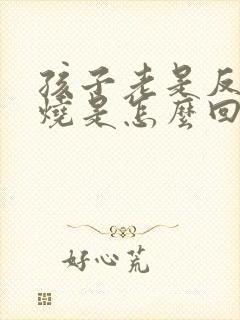 孩子老是反
燒是怎麼回
好心荒